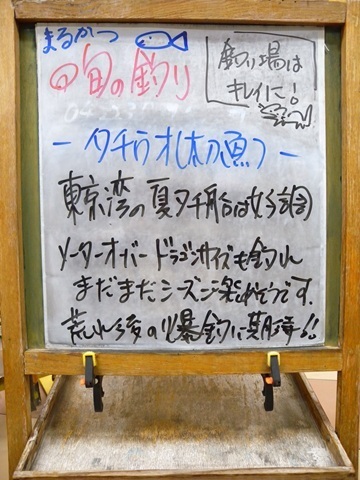 まるかつ
旬の釣り
釣り場は
キレイに!
ータチウオ(太刀魚)ー
東京湾の夏タチ船は好調
メーターオーバードラゴンサイズも釣れ
まだまだシーズン楽しめそうです。
荒れ後の爆釣に期待!!